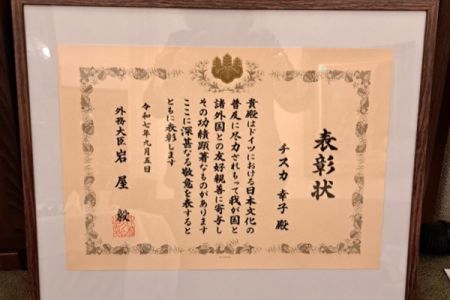 表彰状
チスカ 幸子 殿
貴殿はドイツにおける日本文化の
普及に尽力されもって我が国と
諸外国との友好親善に寄与し
その功績顕著なものがあります
ここに深甚なる敬意を表すると
ともに表彰します
令和七年九月五日
外務大臣 岩屋 毅